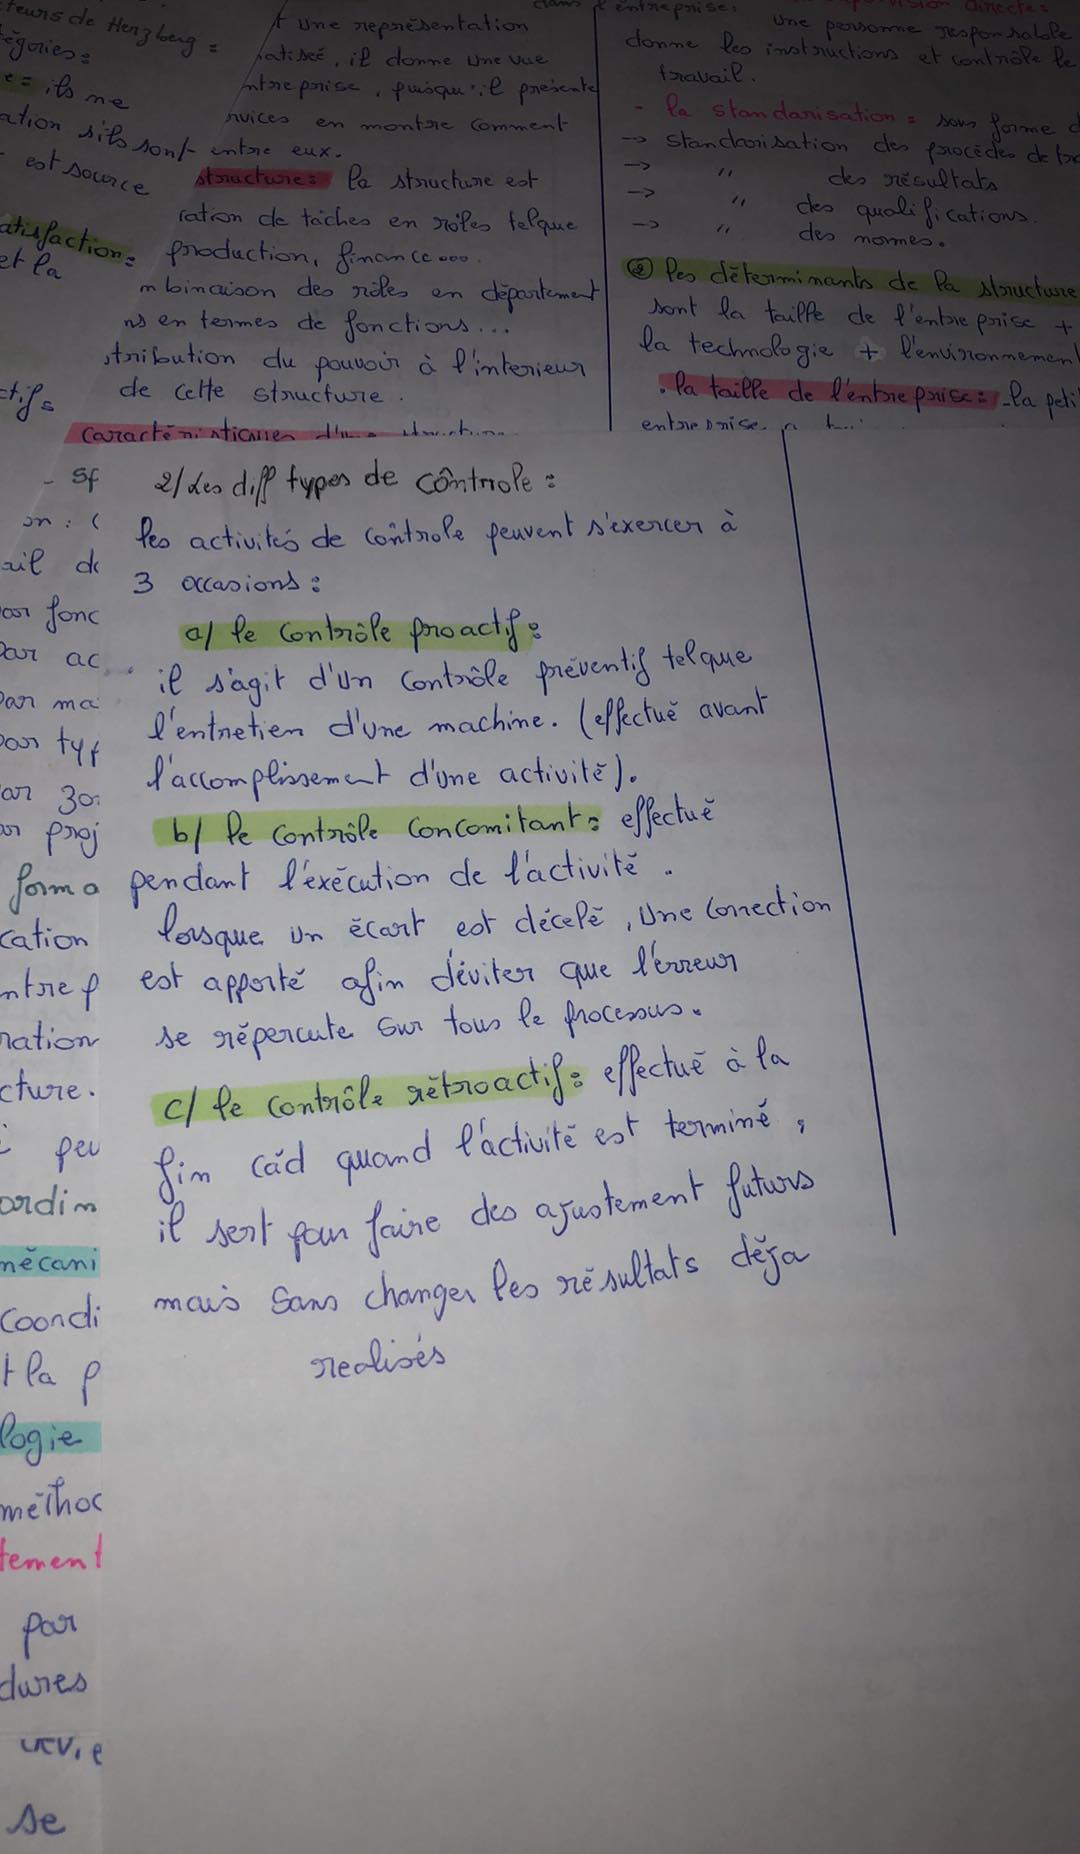 teurs de Herzberg :
égories :
ils ne
ation s'ils sont
est source
atisfaction :
et la
ctifs
Une représentation
atiseé, il donne une vue
ntreprise, puisqu'il présente
rvices en montre comment
entre eux.
structure : la structure est
ration de tâches en rôles telque
production, finance ...
mbinaison des rôles en département
ns en termes de fonctions...
stribution du pouvoir à l'interieur
de cette structure.
Caractéristiques d'une structure
dans l'entreprise :
supervision directe :
Une personne responsable
donne les instructions et contrôle le
travail.
- la standarisation : sous forme d
-> standarisation des procédés de tra
-> " des résultats
-> " des qualifications.
-> " des normes.
② les déterminants de la structure
sont la taille de l'entreprise +
la technologie + l'environnement
. la taille de l'entreprise : la peti
entreprise a
- Sf
on : (
ail de
par fonc
Par ac
Par ma
par typ
ar zo
ar proj
forma
cation
ntrep
ration
cture.
peu
ordin
mécani
Coordi
t la p
logie
méthoc
tement
par
dures
se
2/ Les diff types de Côntrole :
les activités de Côntrole peuvent s'exercer à
3 occasions :
a/ le Contrôle proactif :
il s'agit d'un Contrôle préventif telque
l'entretien d'une machine. (effectué avant
l'accomplissement d'une activité).
b/ le Contrôle Concomitant : effectué
pendant l'exécution de l'activité.
lorsque un écart est décelé, Une Correction
est apporté afin d'éviter que l'érreur
se répercute Sur tous le processus.
c/ le Contrôle rétroactif : effectué à la
fin càd quand l'activité est terminé,
il sert pour faire des ajustement futurs
mais Sans changer les résultats déja
realisés